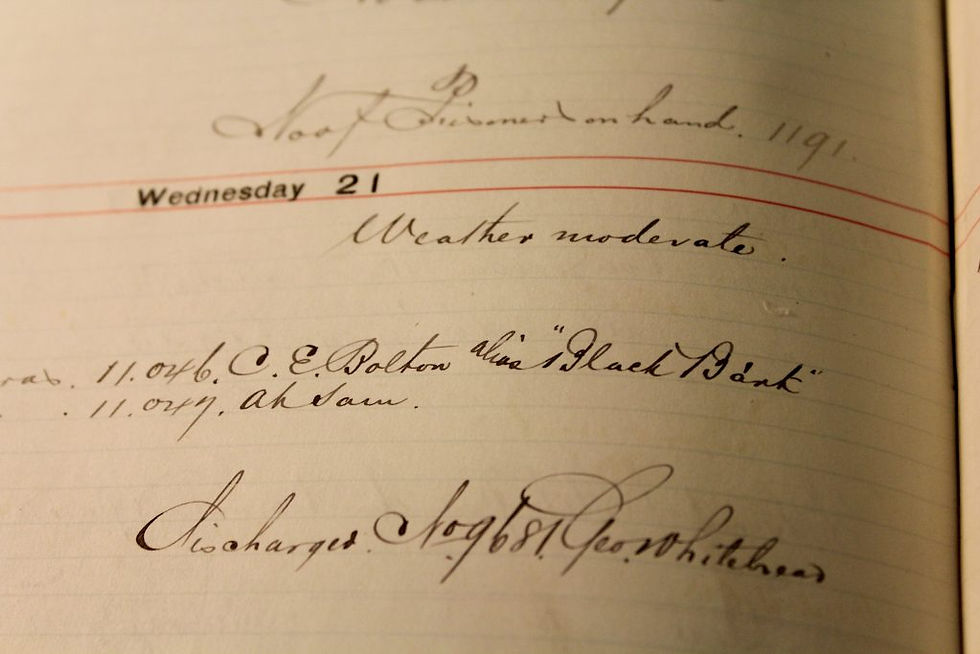 No of Prisoners on hand. 1191.
Wednesday 21
Weather moderate.
11.046. C. E. Bolton alias "Black Bart"
11.047. Ah Sam.
Discharged. No 9681. Geo. Whitehead